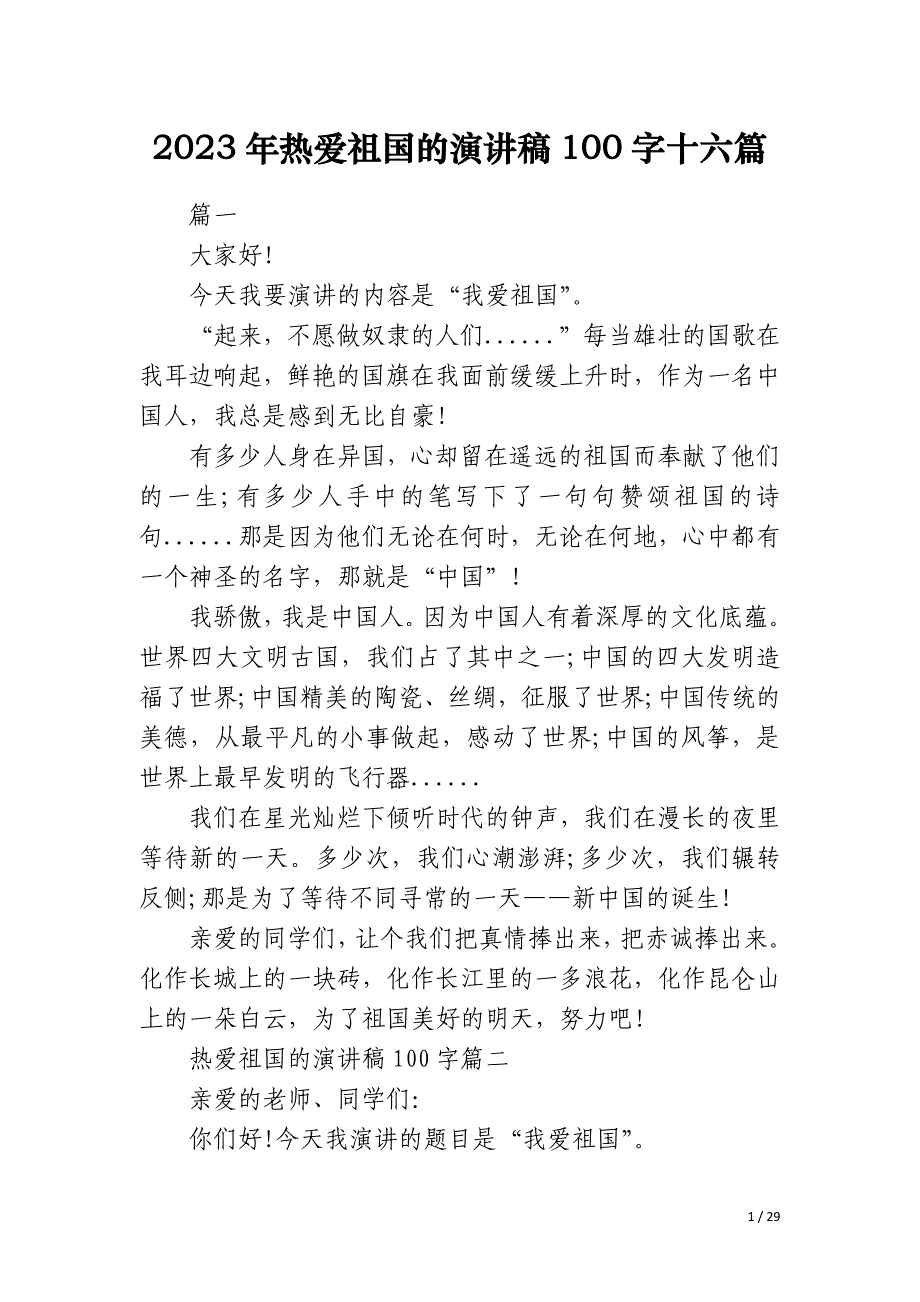 2023年热爱祖国的演讲稿100字十六篇
篇一
大家好!
今天我要演讲的内容是“我爱祖国”。
“起来，不愿做奴隶的人们......”每当雄壮的国歌在
我耳边响起，鲜艳的国旗在我面前缓缓上升时，作为一名中
国人，我总是感到无比自豪!
有多少人身在异国，心却留在遥远的祖国而奉献了他们
的一生;有多少人手中的笔写下了一句句赞颂祖国的诗
句......那是因为他们无论在何时，无论在何地，心中都有
一个神圣的名字，那就是“中国”!
我骄傲，我是中国人。因为中国人有着深厚的文化底蕴。
世界四大文明古国，我们占了其中之一;中国的四大发明造
福了世界;中国精美的陶瓷、丝绸，征服了世界;中国传统的
美德，从最平凡的小事做起，感动了世界;中国的风筝，是
世界上最早发明的飞行器......
我们在星光灿烂下倾听时代的钟声，我们在漫长的夜里
等待新的一天。多少次，我们心潮澎湃;多少次，我们辗转
反侧;那是为了等待不同寻常的一天——新中国的诞生!
亲爱的同学们，让个我们把真情捧出来，把赤诚捧出来。
化作长城上的一块砖，化作长江里的一多浪花，化作昆仑山
上的一朵白云，为了祖国美好的明天，努力吧!
热爱祖国的演讲稿100字篇二
亲爱的老师、同学们:
你们好!今天我演讲的题目是“我爱祖国”。
1 / 29